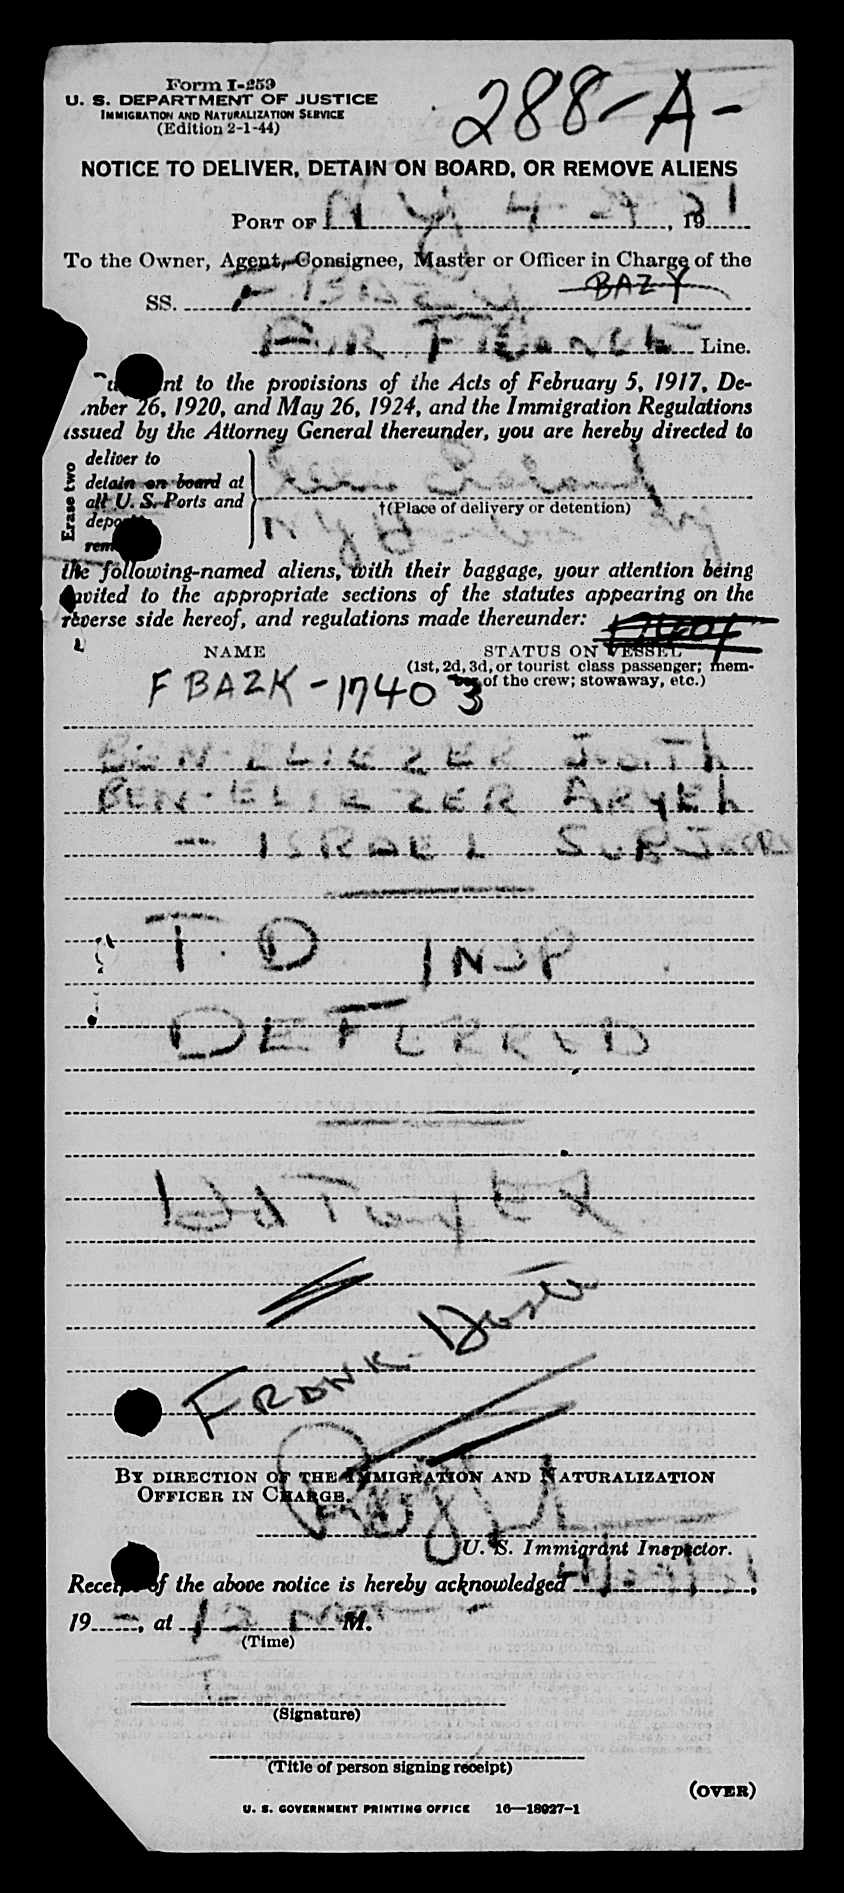 Form I-259
U. S. DEPARTMENT OF JUSTICE
IMMIGRATION AND NATURALIZATION SERVICE
(Edition 2-1-44)
288-A-
NOTICE TO DELIVER, DETAIN ON BOARD, OR REMOVE ALIENS
PORT OF N Y 4-29, 1951
To the Owner, Agent, Consignee, Master or Officer in Charge of the
BAZY
SS. F-BAZ
AIR FRANCE Line.
nt to the provisions of the Acts of February 5, 1917, De-
mber 26, 1920, and May 26, 1924, and the Immigration Regulations
issued by the Attorney General thereunder, you are hereby directed to
Erase two
deliver to
detain on board at
all U. S. Ports and
depo
rem
Ellis Island
†(Place of delivery or detention)
N Y Harbor NY
the following-named aliens, with their baggage, your attention being
invited to the appropriate sections of the statutes appearing on the
reverse side hereof, and regulations made thereunder:
NAME STATUS ON VESSEL
(1st, 2d, 3d, or tourist class passenger; mem-
ber of the crew; stowaway, etc.)
F BAZK - 17403
BEN-ELIEZER Judith
BEN-ELIEZER ARYEh
- ISRAEL SUBJects
T.D INSP
DEFERRED
FRANK
BY DIRECTION OF THE IMMIGRATION AND NATURALIZATION
OFFICER IN CHARGE.
U. S. Immigrant Inspector.
Receipt of the above notice is hereby acknowledged ,
19 , at 12 M.
(Time)
(Signature)
(Title of person signing receipt)
(OVER)
U. S. GOVERNMENT PRINTING OFFICE 16—18027-1